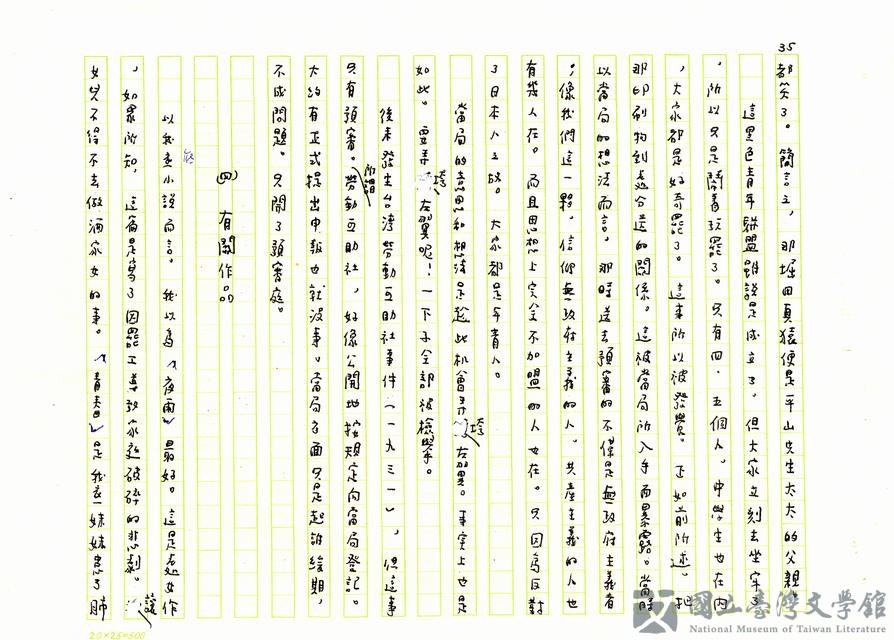 35
都笑了。簡言之，那堀田真猿便是平山先生太太的父親
這黑色青年聯盟雖說是成立了。但大家立刻去坐牢了
，所以只是鬧着玩罷了。只有四、五個人。中學生也在內
，大家都是好奇罷了。這事所以被發覺。正如前所述。把
那印刷物到處分送的關係。這被當局所入手而暴露。當時
以當局的想法而言。那時送去預審的不僅是無政府主義者
，像我們這一夥，信仰無政府主義的人。共產主義的人也
有幾人在。而且思想上完全不加盟的人也在。只因為反對
了日本人之故。大家都是年青人。
當局的意思和想法是趁此机會弄垮左翼。事实上也是
如此。要弄垮左翼呢！一下子全部被檢舉。
後來發生台灣勞動互助社事件（一九三一），但這事
只有預審。所謂勞動互助社，好像公開地按規定向當局登記。
大約有正式提出申報也就沒事。當局方面只是起訴緩期，
不成問題。只開了預審庭。
㈣ 有關作品
以我底小說而言。我以為《夜雨》最好。這是處女作
，如眾所知，這篇是寫了因罷工導致家庭破碎的悲劇。讓
女兒不得不去做酒家女的事。《青春》是我底妹妹患了肺
20×25=500
國立臺灣文學館
National Museum of Taiwan Literature